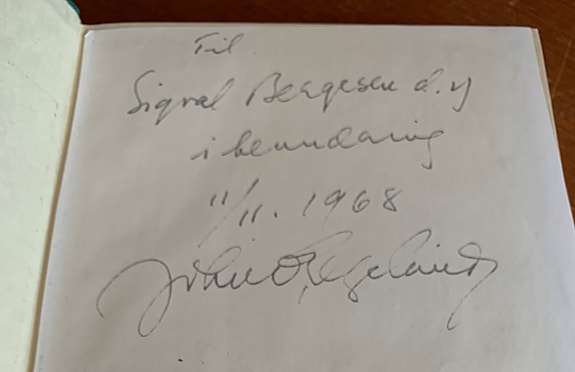 Til
Sigval Bergesen d.y
i beundring
11/11. 1968
John O. Egeland